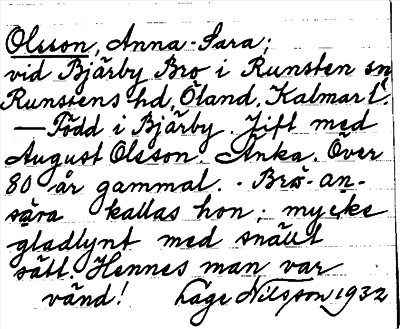 Olsson, Anna-Sara;
vid Bjärby Bro i Runsten sn
Runstens hd, Öland, Kalmar l.
— Född i Bjärby. Gift med
August Olsson. Änka. Över
80 år gammal. - Bro-an-
sara kallas hon; mycke
gladlynt med snällt
sätt. Hennes man var
vänd! Låge Nilsson 1932